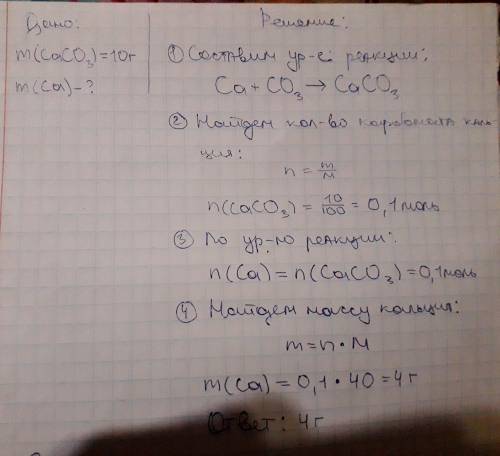 Дано:
m(CaCO3)=10г
m(Ca)-?
Решение:
① Составим ур-е реакции:
Ca + CO3 → CaCO3
② Найдем кол-во карбоната каль-
ция:
n = m/M
n(CaCO3) = 10/100 = 0,1 моль
③ По ур-ю реакции:
n(Ca) = n(CaCO3) = 0,1 моль
④ Найдем массу кальция:
m = n • M
m(Ca) = 0,1 • 40 = 4 г
Ответ: 4 г